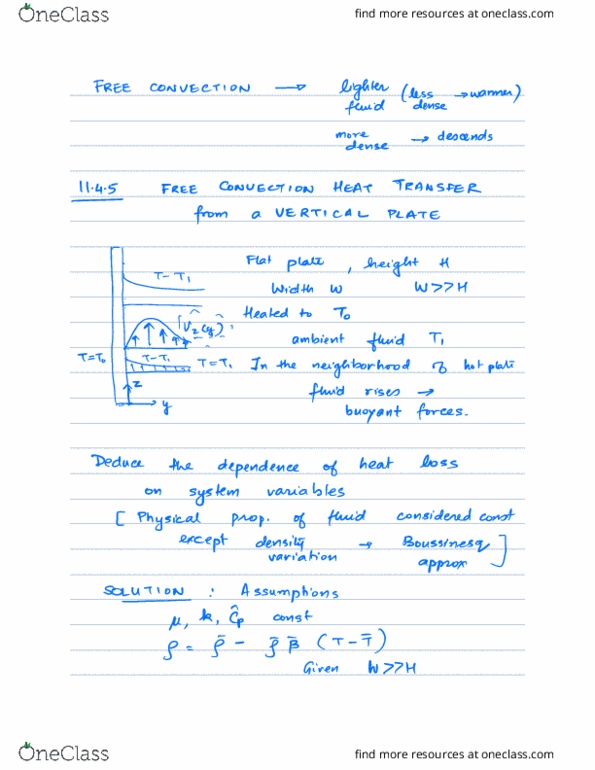 OneClass
find more resources at oneclass.com
FREE CONVECTION → lighter fluid (less dense → warmer)
more dense → descends
11.4.5 FREE CONVECTION HEAT TRANSFER
from a VERTICAL PLATE
Flat plate, height H
T-T₁
Width W W>>H
Heated to T₀
[v̂z(y)]
ambient fluid T₁
T=T₀
T-T₁
T=T₁
In the neighborhood of hot plate
z
fluid rises →
y
buoyant forces.
Deduce the dependence of heat loss
on system variables
[ Physical prop. of fluid considered const
except density variation → Boussinesq approx ]
SOLUTION : Assumptions
μ, k, Ĉp const
ρ = ρ̄ - ρ̄ β̄ (T-T̄)
Given W>>H
OneClass
find more resources at oneclass.com